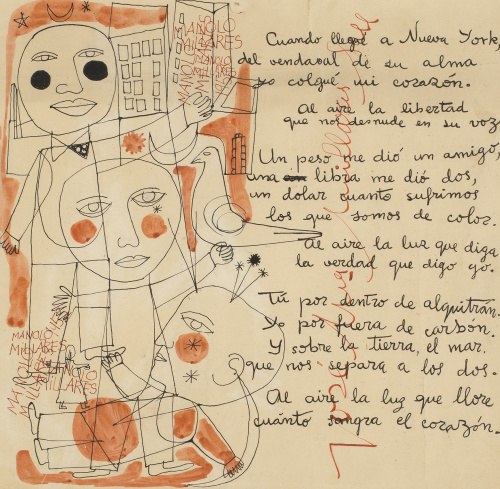 MANOLO
MILLARES
MANOLO
MILLARES
Cuando llegué a Nueva York,
del vendaval de su alma
yo colgué mi corazón.
Al aire la libertad
que nos desnude en su voz
Un peso me dió un amigo,
una libra me dió dos,
un dolar cuanto sufrimos
los que somos de color.
Al aire la luz que diga
la verdad que digo yo.
Tú por dentro de alquitrán.
Yo por fuera de carbón.
Y sobre la tierra, el mar.
que nos separa a los dos.
Al aire la luz que llore
cuánto sangra el corazón.
MANOLO
MILLARES
MANOLO
MILLARES
José Millares